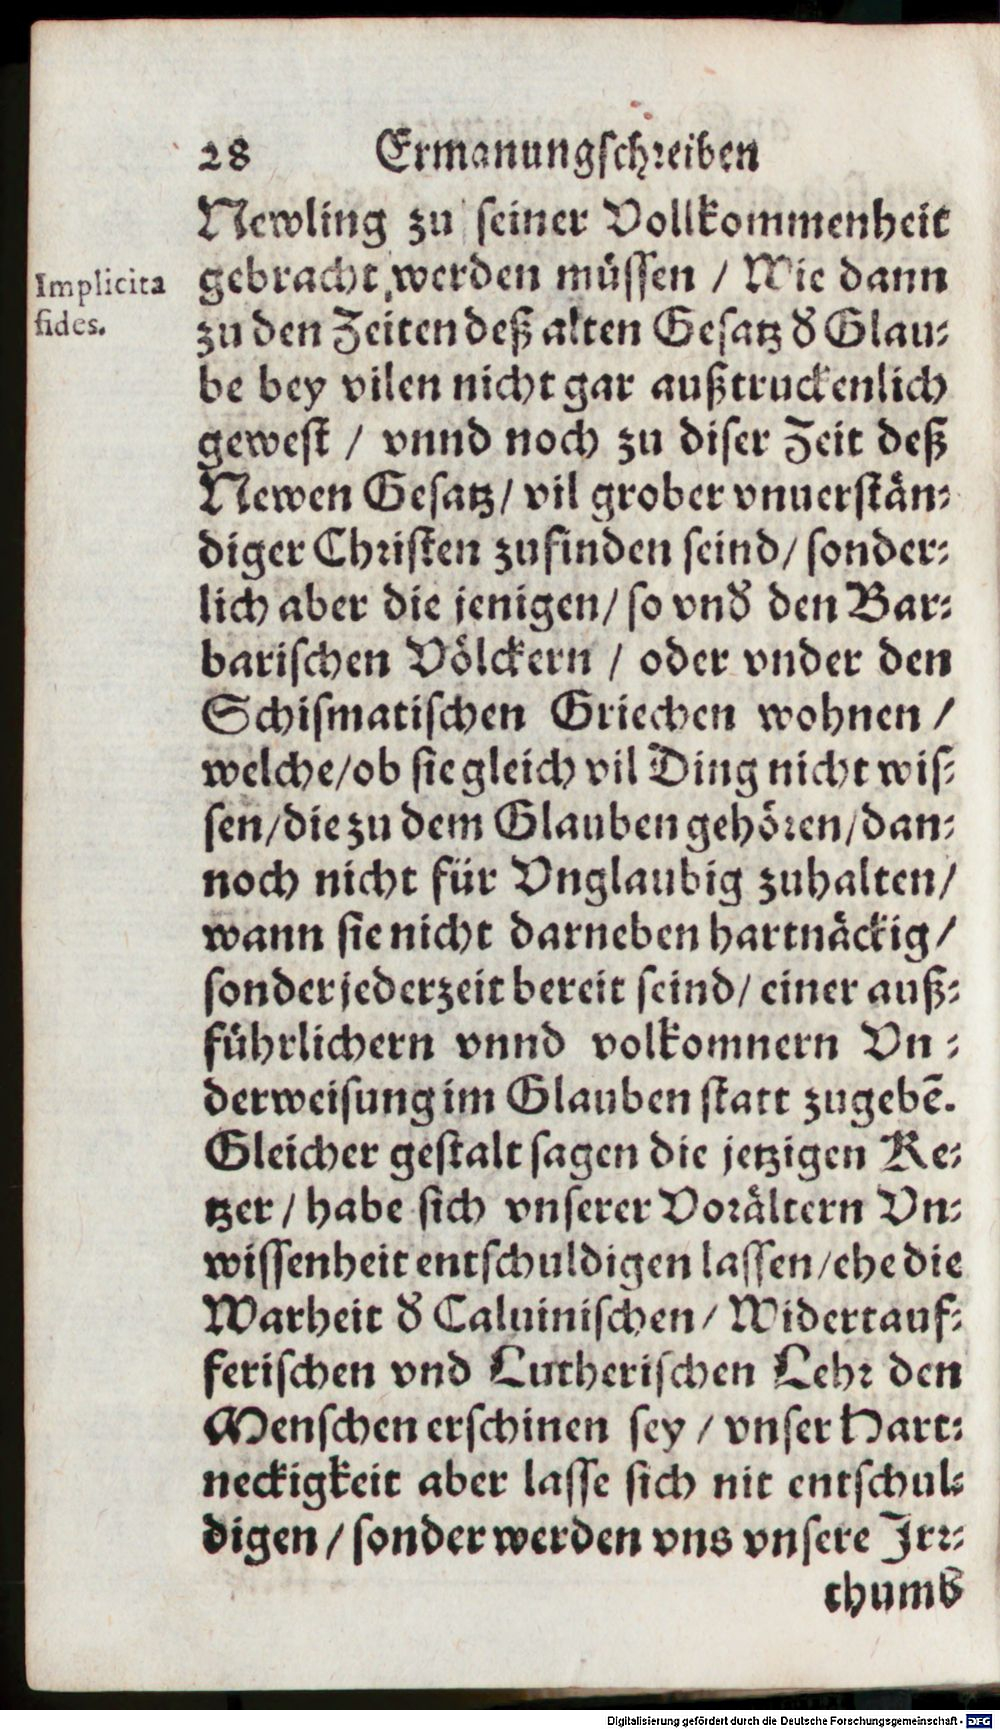 28 Ermanungſchreiben
Newling zu ſeiner Vollkommenheit
gebracht werden müſſen / Wie dann
Implicita
fides.
zu den Zeiten deß alten Geſatz d' Glau⸗
be bey vilen nicht gar außtruckenlich
geweſt / vnnd noch zu diſer Zeit deß
Newen Geſatz / vil grober vnuerſtän⸗
diger Chriſten zufinden ſeind / ſonder⸗
lich aber die jenigen / ſo vnd' den Bar⸗
bariſchen Völckern / oder vnder den
Schiſmatiſchen Griechen wohnen /
welche / ob ſie gleich vil Ding nicht wiſ⸗
ſen / die zu dem Glauben gehören / dan⸗
noch nicht für Vnglaubig zuhalten /
wann ſie nicht darneben hartnäckig /
ſonder jederzeit bereit ſeind / einer auß⸗
führlichern vnnd volkomnern Vn⸗
derweiſung im Glauben ſtatt zugebẽ.
Gleicher geſtalt ſagen die jetzigen Ke⸗
tzer / habe ſich vnſerer Vorältern Vn⸗
wiſſenheit entſchuldigen laſſen / ehe die
Warheit d' Caluiniſchen / Widertauf⸗
feriſchen vnd Lutheriſchen Lehr den
Menſchen erſchinen ſey / vnſer Hart⸗
neckigkeit aber laſſe ſich nit entſchul⸗
digen / ſonder werden vns vnſere Irr⸗
thumb
Digitalisierung gefördert durch die Deutsche Forschungsgemeinschaft - DFG